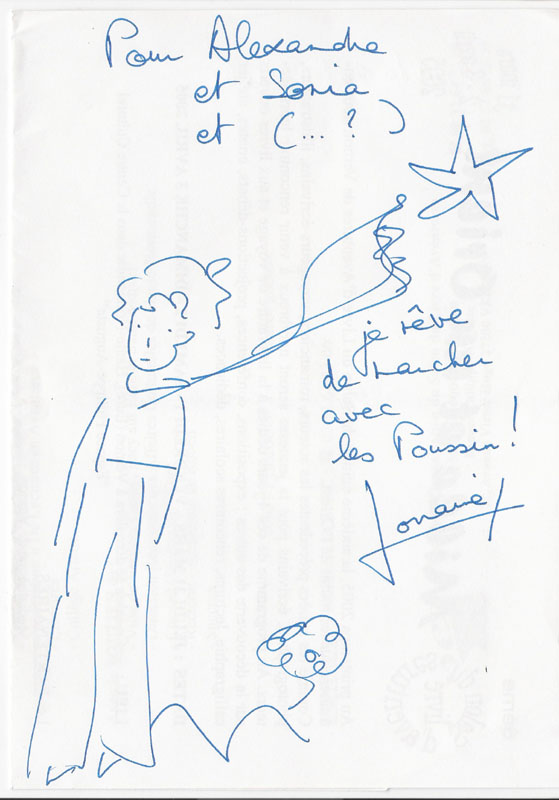 Pour Alexandre
et Sonia
et (... ?)
je rêve
de marcher
avec
les Poussin !